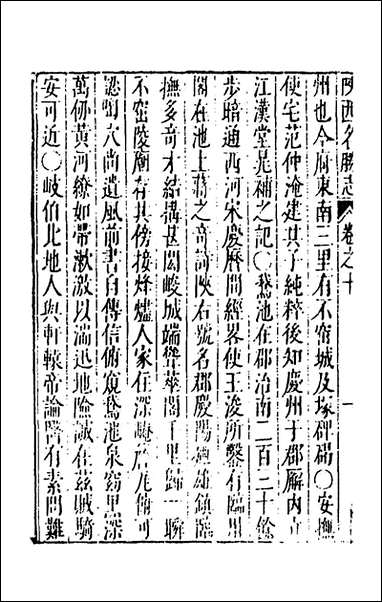 陝西名勝志 卷之十 一
州也今府東南三里有不窋城及塚碑碣〇安撫
使宅范仲淹建其子純粹後知慶州于郡廨內立
江漢堂晁補之記〇鵞池在郡治南二百三十餘
步暗通西河宋慶曆間經畧使王浚所鑿有臨川
閣在池上蔣之奇詩陝右號名郡慶陽輿雄鎮臨
撫多奇才結搆甚閎峻城端聳華閣千里歸一瞬
不窋陵廟有其傍接烽爐人家在深崦居尤俯可
認窰穴尚遺風前書自傳信俯窺鵞池泉窈深
萬仞黃河繚如帶激激以湍迅地險誠在茲賊騎
安可近〇岐伯北地人與軒轅帝論醫有素問難